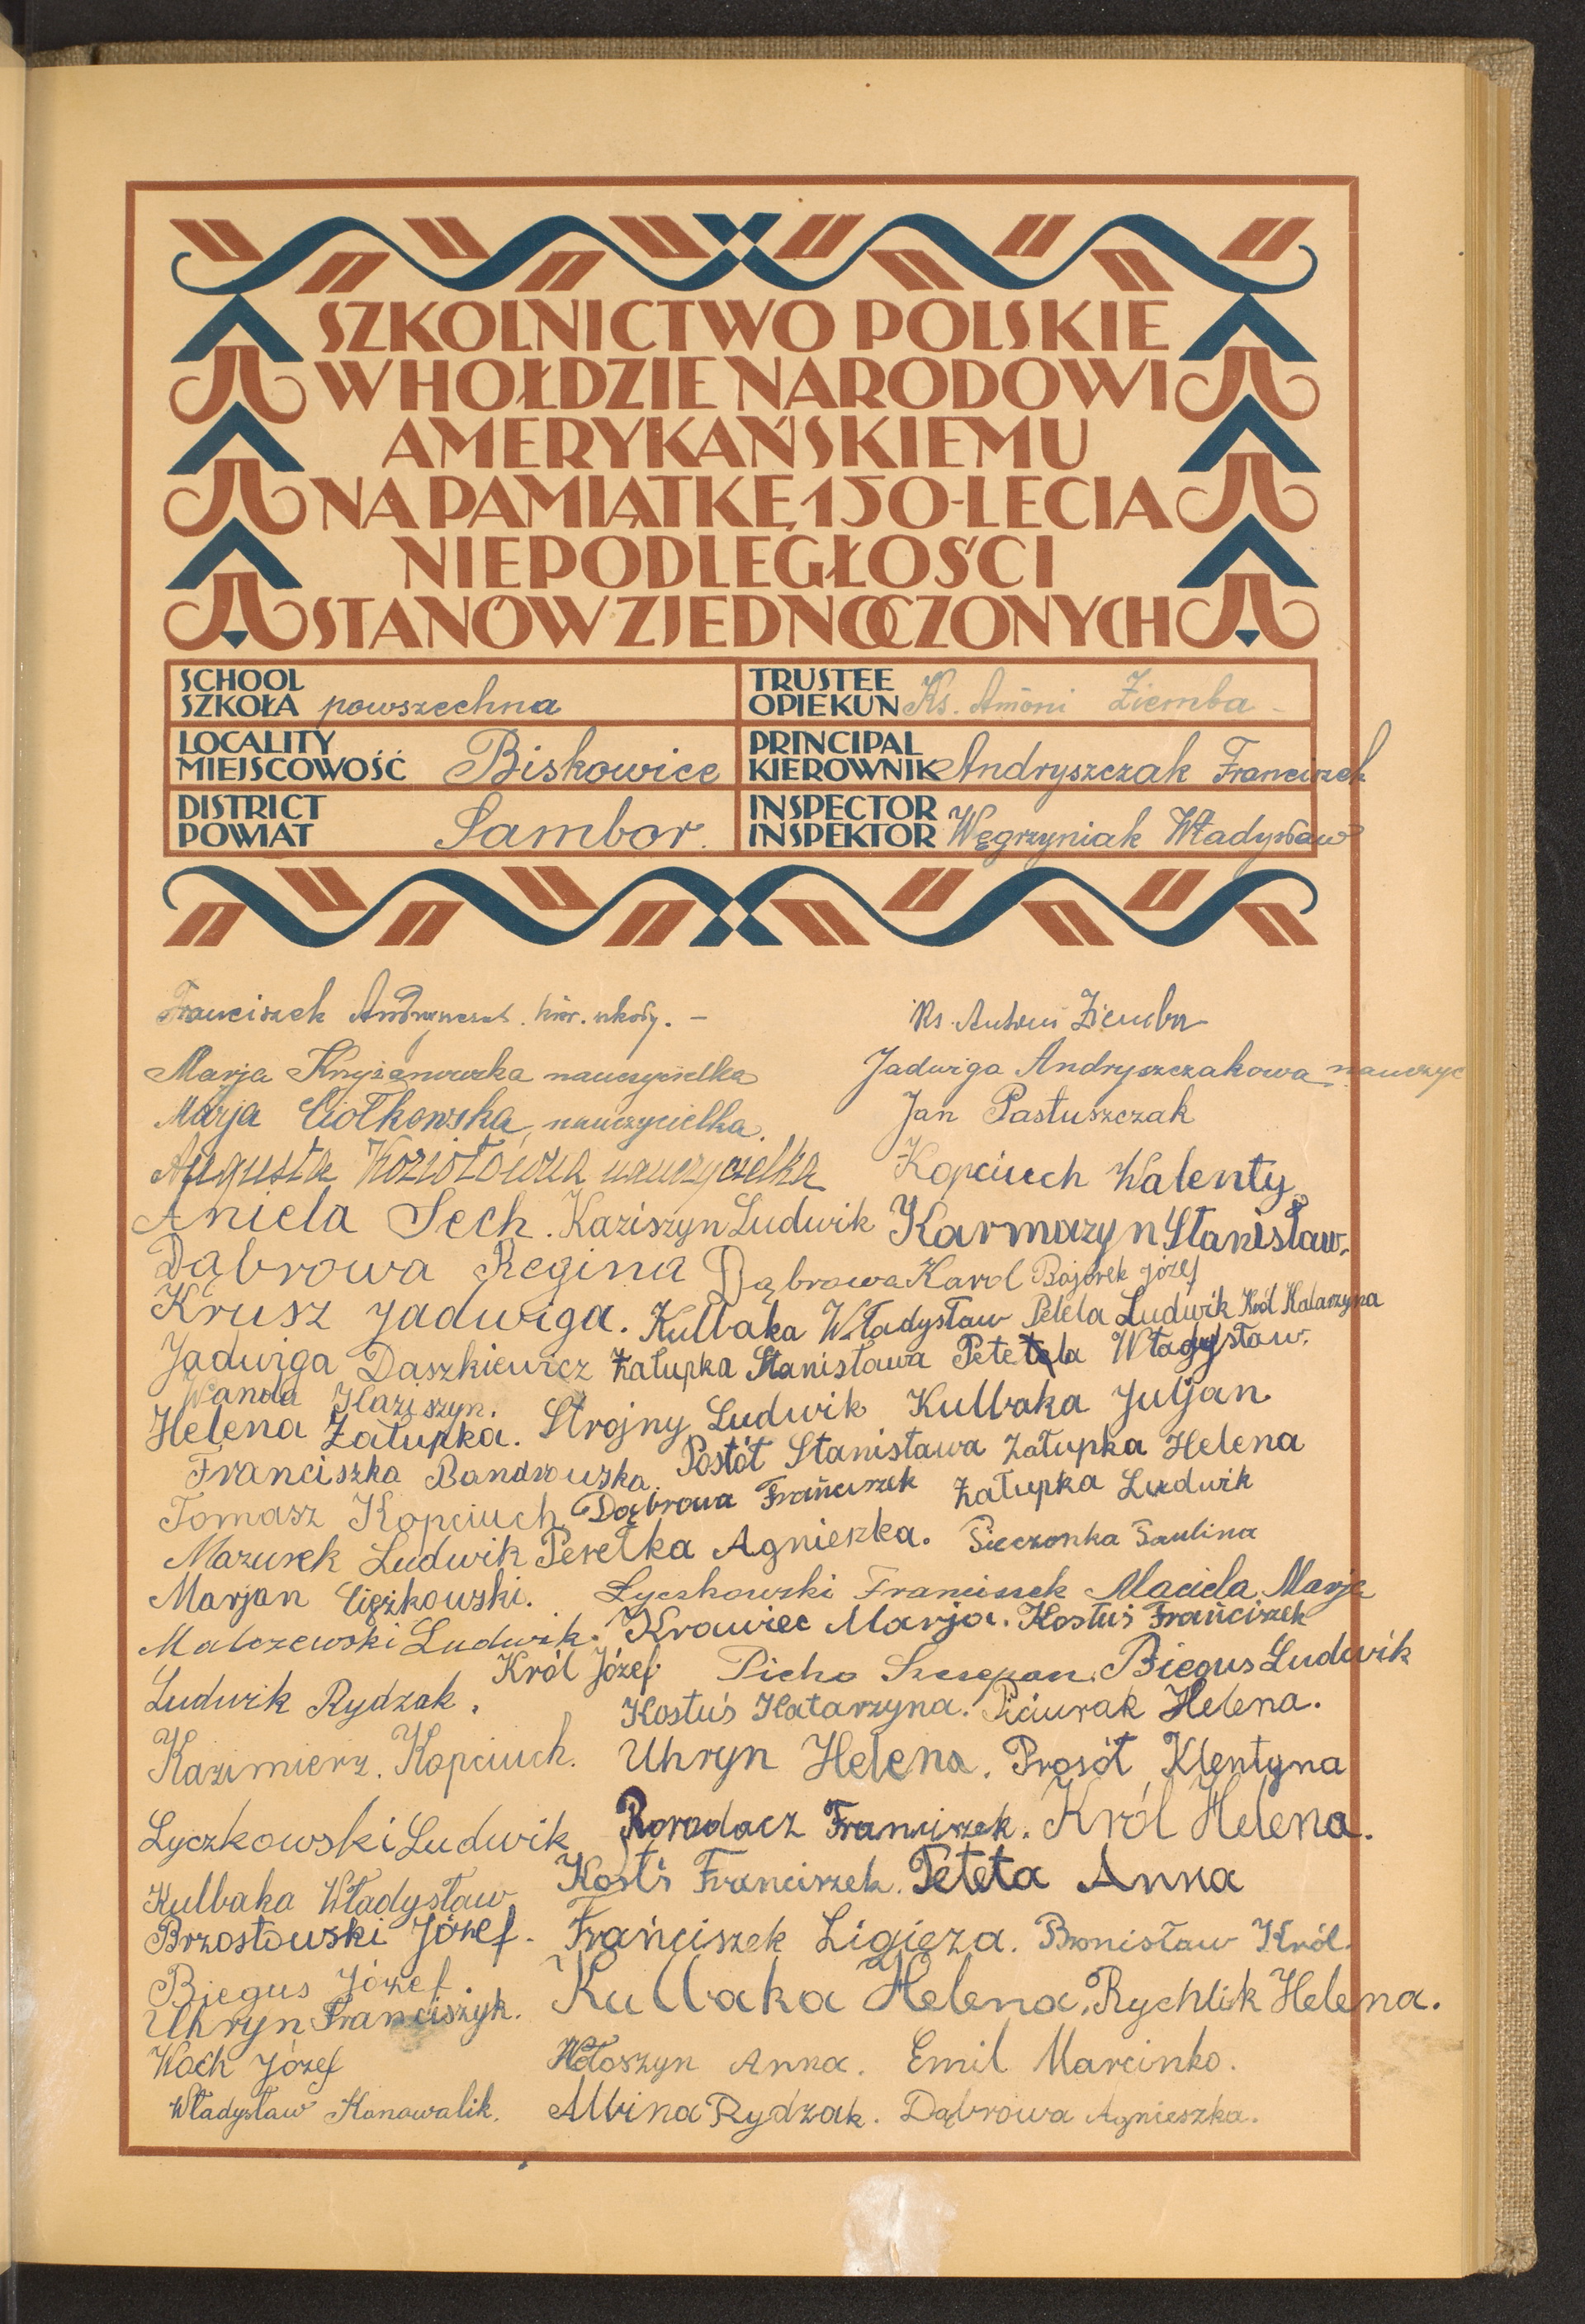 SZKOLNICTWO POLSKIE
W HOŁDZIE NARODOWI
AMERYKAŃSKIEMU
NA PAMIĄTKĘ 150-LECIA
NIEPODLEGŁOŚCI
STANÓW ZJEDNOCZONYCH
SCHOOL
SZKOŁA powszechna
TRUSTEE
OPIEKUN Ks. Antoni Ziemba
LOCALITY
MIEJSCOWOŚĆ Biskowice
PRINCIPAL
KIEROWNIK Andryszczak Franciszek
DISTRICT
POWIAT Sambor.
INSPECTOR
INSPEKTOR Węgrzyniak Władysław
Franciszek Andryszczak kier. szkoły. Ks. Antoni Ziemba
Marja Krzyżanowska nauczycielka Jadwiga Andryszczakowa nauczyc
Marja Ciołkowska, nauczycielka. Jan Pastuszczak
Augusta Koziołówna nauczycielka Kopciuch Walenty
Aniela Sech. Kaziszyn Ludwik Karmazyn Stanisław.
Dąbrowa Regina Dąbrowa Karol Bajorek Józef
Krusz Jadwiga. Kulbaka Władysław Petela Ludwik Król Katarzyna
Jadwiga Daszkiewicz Załupka Stanisława Władysław.
Wanda Kaziszyn.
Helena Załupka. Strojny Ludwik Kulbaka Juljan
Franciszka Bandrowska. Postół Stanisława Załupka Helena
Tomasz Kopciuch Dąbrowa Frańciszek Załupka Ludwik
Mazurek Ludwik Perełka Agnieszka. Pieczonka Paulina
Marjan Ciężkowski. Łyczkowski Franciszek Maciela Marja
Malczewski Ludwik. Krawiec Marja. Kostuś Frańciszek
Król Józef. Picho Szczepan. Biegus Ludwik
Ludwik Rydzak. Kostuś Katarzyna. Piciurak Helena.
Kazimierz. Kopciuch. Uhryn Helena. Prosół Klentyna
Łyczkowski Ludwik Borodacz Franciszek. Król Helena.
Kulbaka Władysław Kostś Franciszek. Peteta Anna
Brzostowski Józef. Frańciszek Ligięza. Bronisław Król.
Biegus Józef.
Uhryn Franciszyk. Kulbaka Helena. Rychlik Helena.
Woch Józef Hołoszyn Anna. Emil Marcinko.
Władysław Konowalik. Albina Rydzak. Dąbrowa Agnieszka.